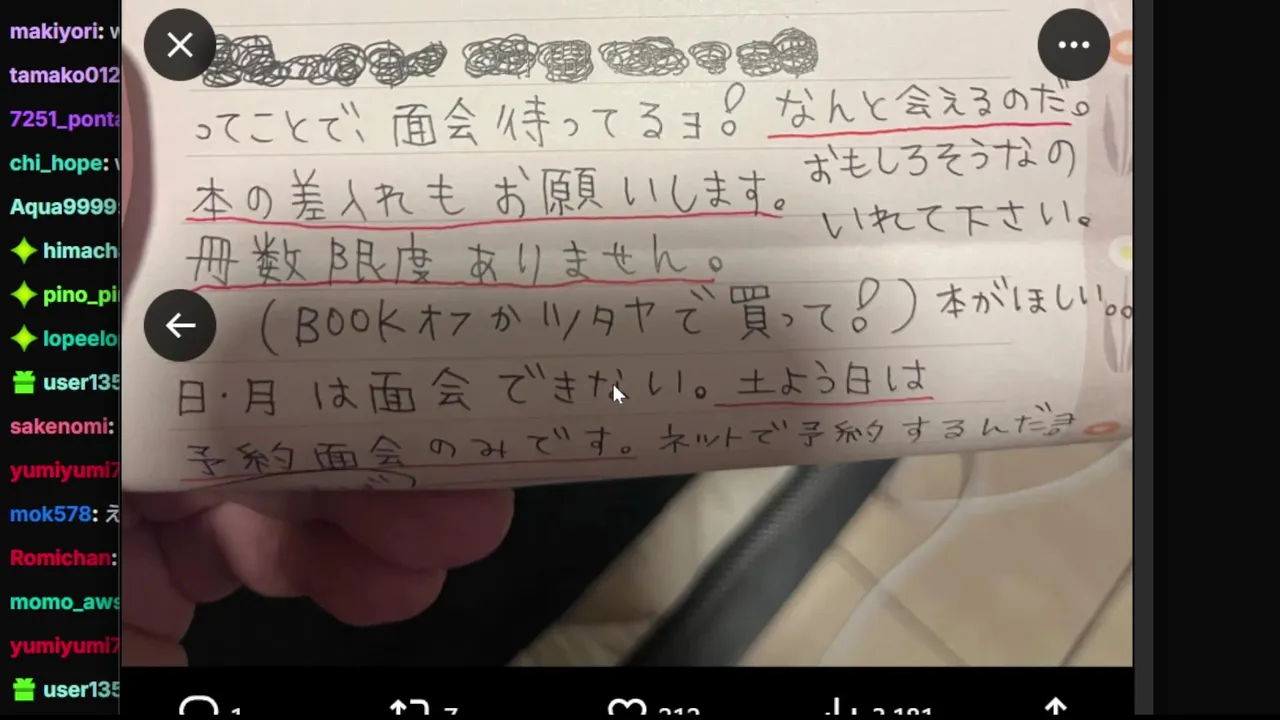 makiyori: w
tamako012
7251_ponta
chi_hope: w
Aqua9999:
himach
pino_pi
lopeelo
user135
sakenomi:
yumiyumi7
mok578: え
Romichan:
momo_aws
yumiyumi7
user135
ってことで、面会待ってるョ! なんと会えるのだ。
本の差入れもお願いします。 おもしろそうなの
いれて下さい。
冊数限度ありません。
(BOOKオフかツタヤで買って!) 本がほしい。。
日・月は面会できない。土よう日は
予約面会のみです。ネットで予約するんだ
1
7
212
3,181